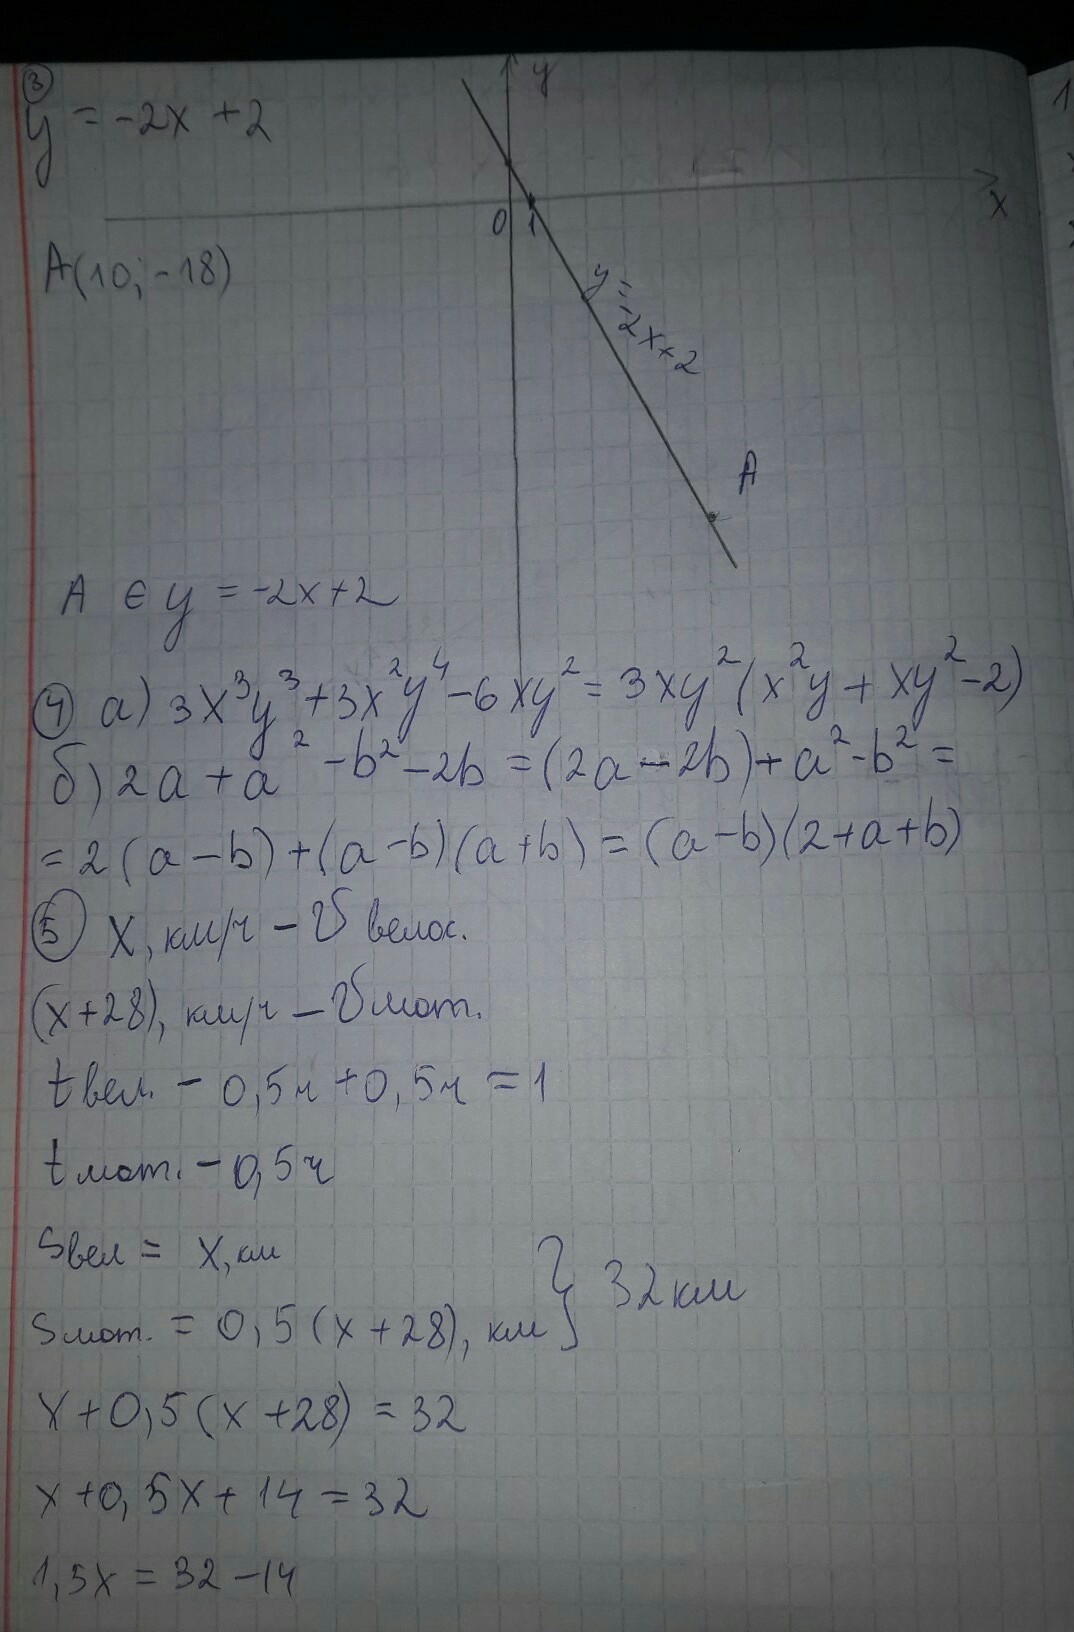 ③
y = -2x + 2
y
x
0 1
A(10; -18)
y = -2x+2
A
A ∈ y = -2x+2
④ а) 3x³y³ + 3x²y⁴ - 6xy² = 3xy²(x²y + xy² - 2)
б) 2a + a² - b² - 2b = (2a - 2b) + a² - b² =
= 2(a - b) + (a - b)(a + b) = (a - b)(2 + a + b)
⑤ x, км/ч - v велос.
(x+28), км/ч - v мот.
t вел. - 0,5ч + 0,5ч = 1
t мот. - 0,5ч
S вел = x, км
S мот. = 0,5(x+28), км } 32 км
x + 0,5(x+28) = 32
x + 0,5x + 14 = 32
1,5x = 32 - 14
1